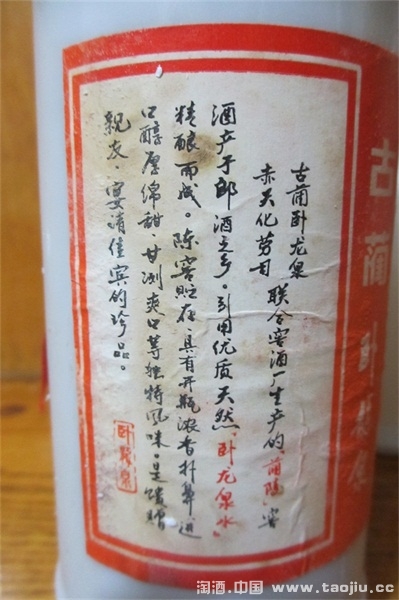 古蔺卧龙泉
赤天化劳司 联合窖酒厂生产的"蔺陵"窖
酒产于郎酒之乡。引用优质天然"卧龙泉水"
精酿而成。陈窖贮存,具有开瓶浓香扑鼻,进
口醇厚绵甜、甘洌爽口等独特风味。是馈赠
亲友、宴请佳宾的珍品。
卧龍泉
古蔺
淘酒.中国 www.taojiu.cc